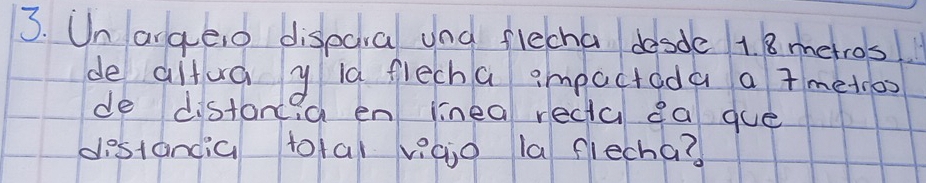 3. Un arqueio dispara una flecha desde 1.8 metros
de altura y la flecha impactada a 7 metros
de distancia en linea recta ¿a que
distancia total viajo la flecha?